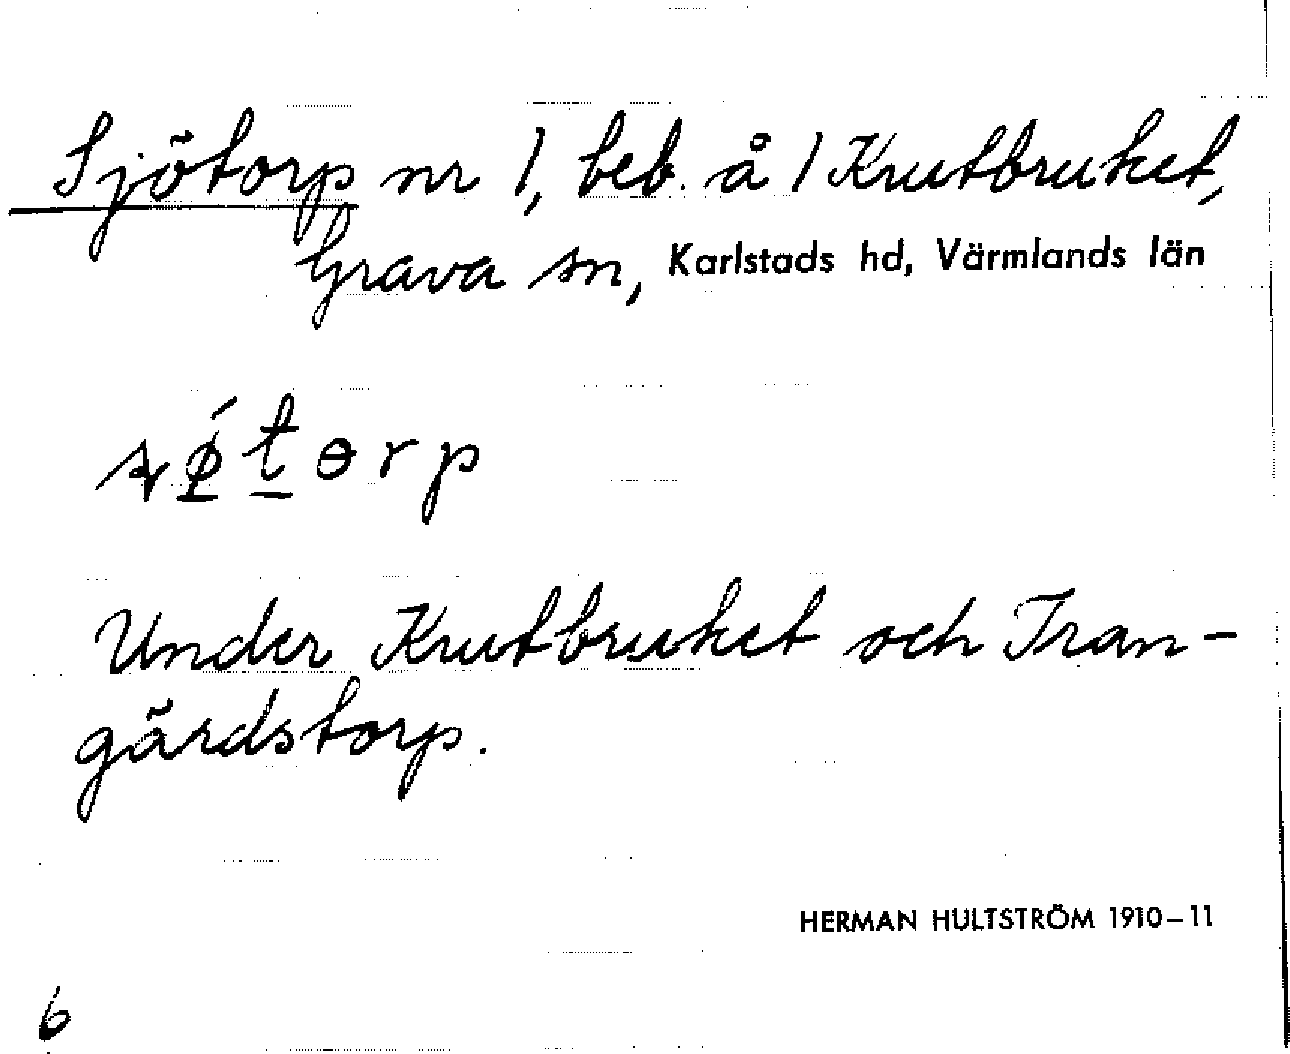 Sjötorp nr 1, beb. å 1 Krutbruket,
Grava sn, Karlstads hd, Värmlands län
Under Krutbruket och Tran-
gärdstorp.
HERMAN HULTSTRÖM 1910-11
6